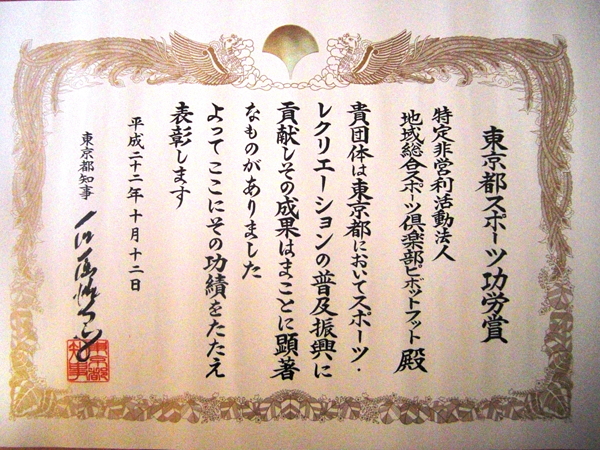 東京都スポーツ功労賞
特定非営利活動法人
地域総合スポーツ倶楽部ピボットフット 殿
貴団体は東京都においてスポーツ・
レクリエーションの普及振興に
貢献しその成果はまことに顕著
なものがありました
よってここにその功績をたたえ
表彰します
平成二十二年十月十二日
東京都知事 石原慎太郎
東京都
知事